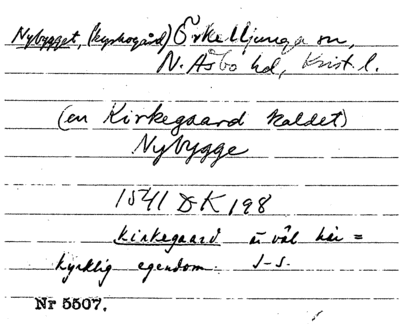 Nybygget, (kyrkogård) Örkelljunga sn,
N. Åsbo hd, Krist. l.
(en Kirkegaard kaldet)
Nybygge
1541 DK 198
Kirkegaard är väl här =
kyrklig egendom. J-S.
Nr 5507.